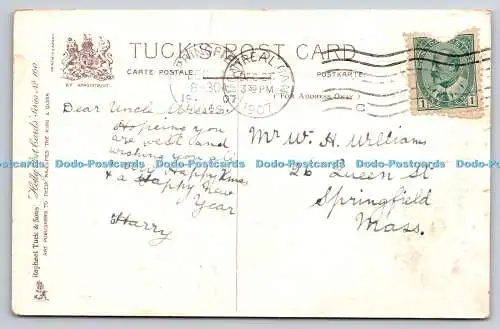 TUCK'S POST CARD
CARTE POSTALE
POSTKARTE
BY APPOINTMENT
( For Address Only )
Raphael Tuck & Sons' "Holly" Post Card Series Nº 100
ART PUBLISHERS TO THEIR MAJESTIES THE KING & QUEEN
SPRINGFIELD
8-30
19
MONTREAL CANADA
3-30 PM
1907
C
1
1
Dear Uncle
Hopeing you
are well and
wishing you a
very Happy Xmas
& a Happy New
Year
Harry
Mr W. H. Williams
26 Queen St
Springfield
Mass.
Dodo-Postcards Dodo-Postcards Dodo-Postcards Dodo-Postcards Dodo-Postcards